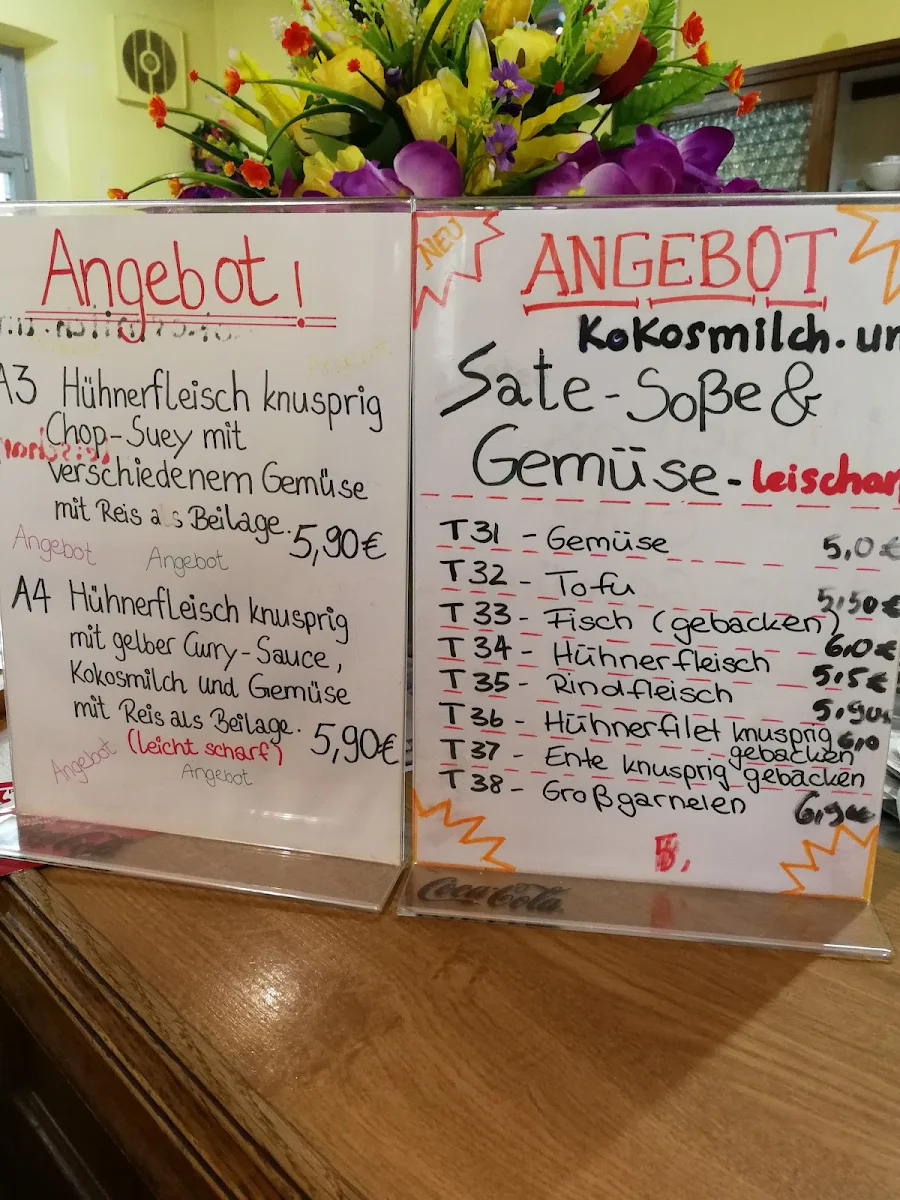 Angebot!
A3 Hühnerfleisch knusprig
Chop-Suey mit
verschiedenem Gemüse
mit Reis als Beilage.
5,90€
Angebot Angebot
A4 Hühnerfleisch knusprig
mit gelber Curry-Sauce,
Kokosmilch und Gemüse
mit Reis als Beilage.
5,90€
(leicht scharf)
Angebot
Angebot
NEU
ANGEBOT
Kokosmilch. un
Sate-Soße &
Gemüse - leischar
T31 - Gemüse 5,0€
T32 - Tofu 5,50€
T33 - Fisch (gebacken) 6,0€
T34 - Hühnerfleisch 5,5€
T35 - Rindfleisch 5,90
T36 - Hühnerfilet knusprig 6,0
gebacken
T37 - Ente knusprig gebacken
T38 - Großgarnelen 6,9€
Coca-Cola